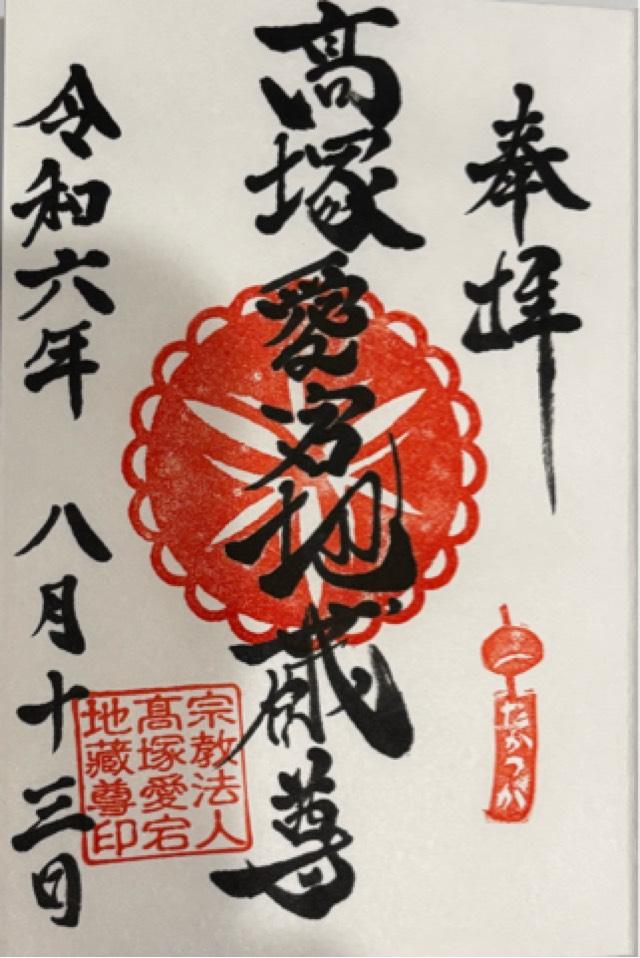 奉拝
たかつか
髙塚愛宕地蔵尊
宗教法人
髙塚愛宕
地蔵尊印
令和六年 八月十三日